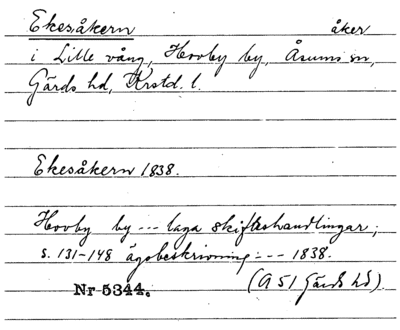 Ekesåkern åker
i Lille vång, Hovby by, Åsums sn,
Gärds hd, Krstd. l.
Ekesåkern 1838.
Hovby by --- laga skifteshandlingar;
s. 131-148 ägobeskrivning --- 1838.
Nr 5344. (A 51 Gärds hd).